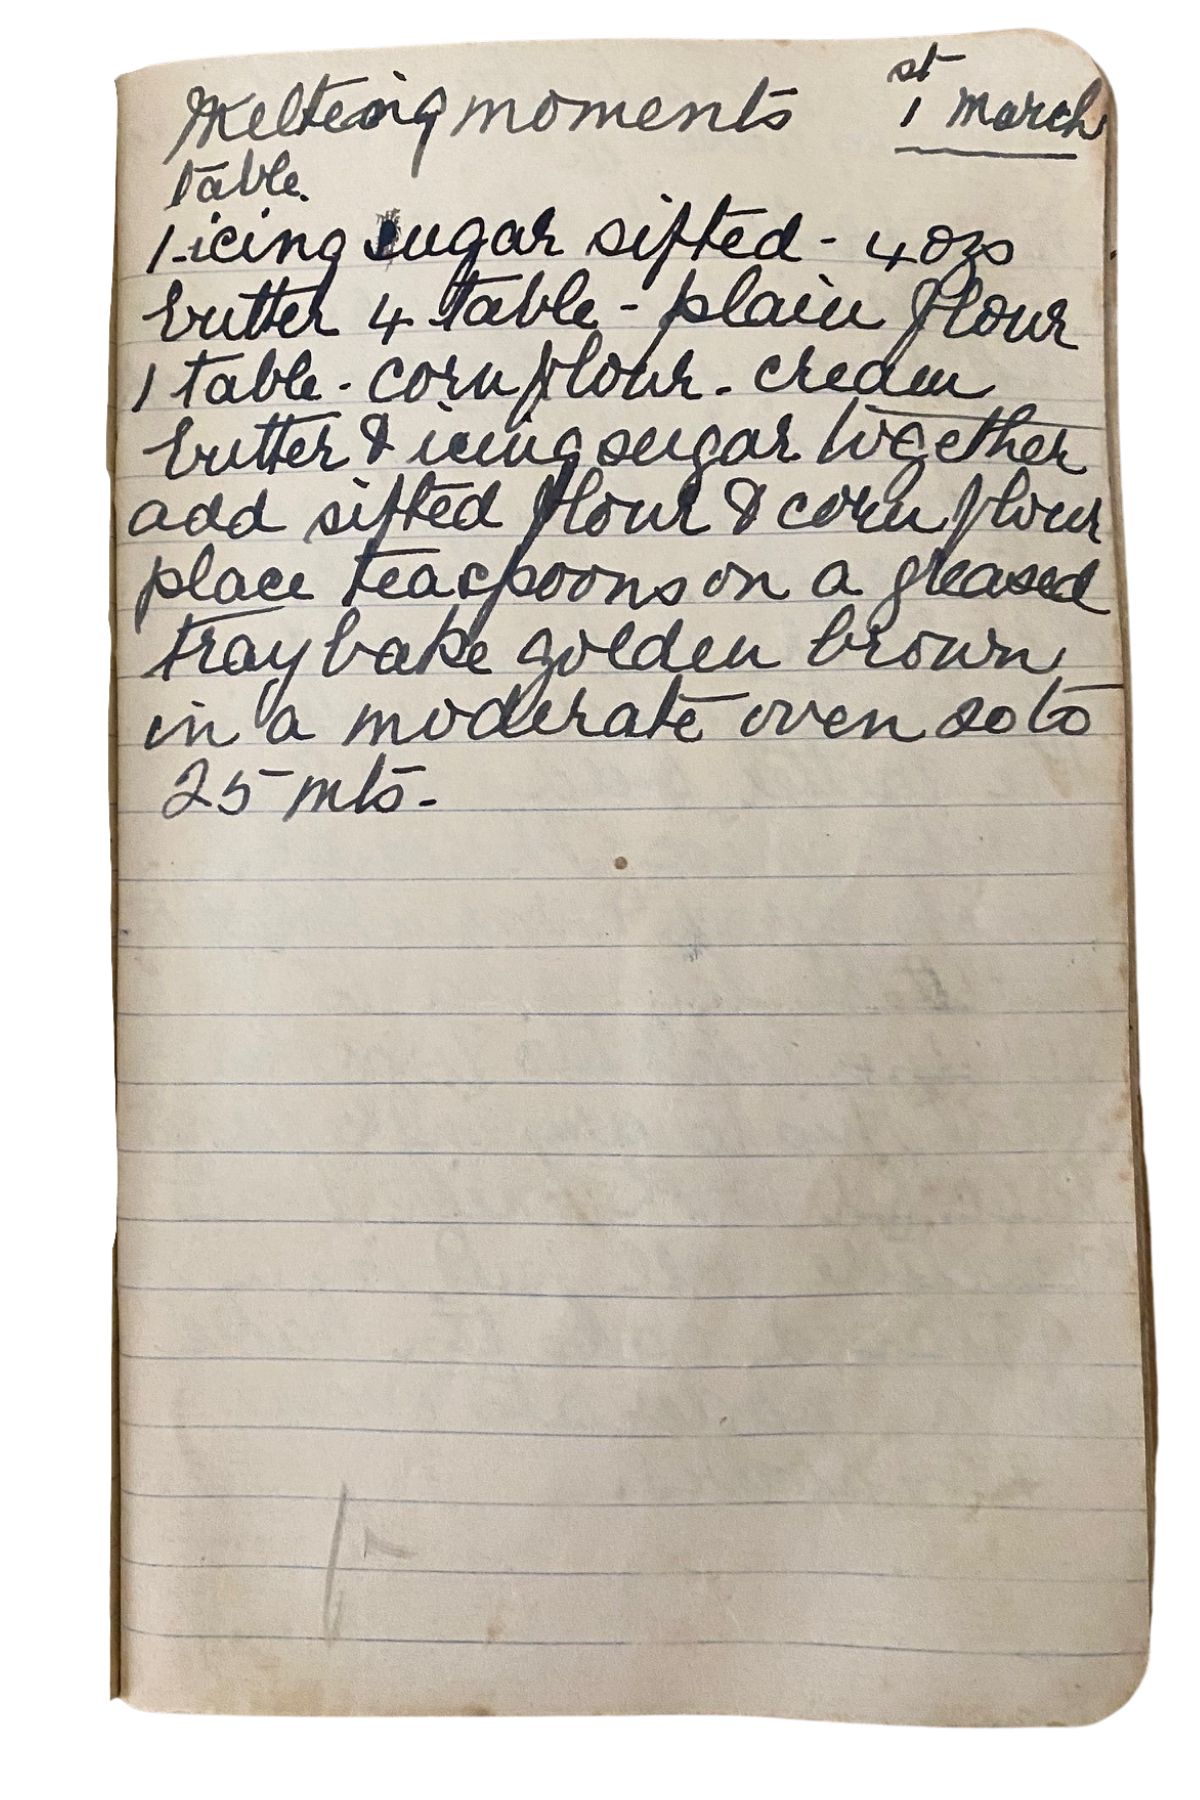 Melteing moments 1st March
table.
1 - icing sugar sifted - 4 ozs
butter 4 table - plain flour
1 table - corn flour - cream
butter & icing sugar together
add sifted flour & corn flour
place teaspoons on a greased
tray bake golden brown
in a moderate oven 20 to
25 mts -